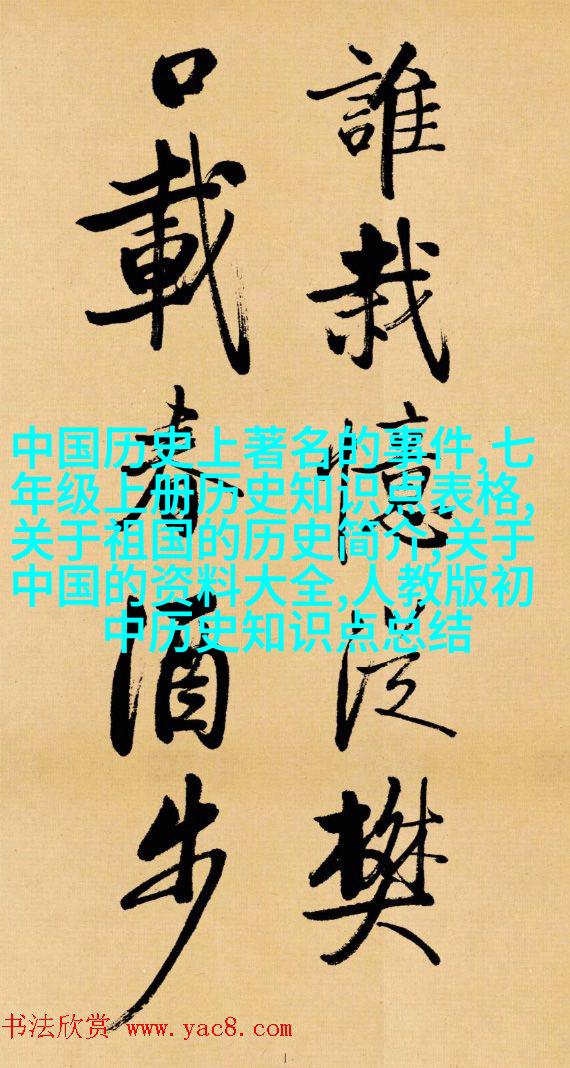 誰栽憶泛樊
口載春酒步
中国历史上著名的事件,七
年级上册历史知识点表格,
关于祖国的历史简介,关于
中国的资料大全,人教版初
中历史知识点总结
书法欣赏 www.yac8.com